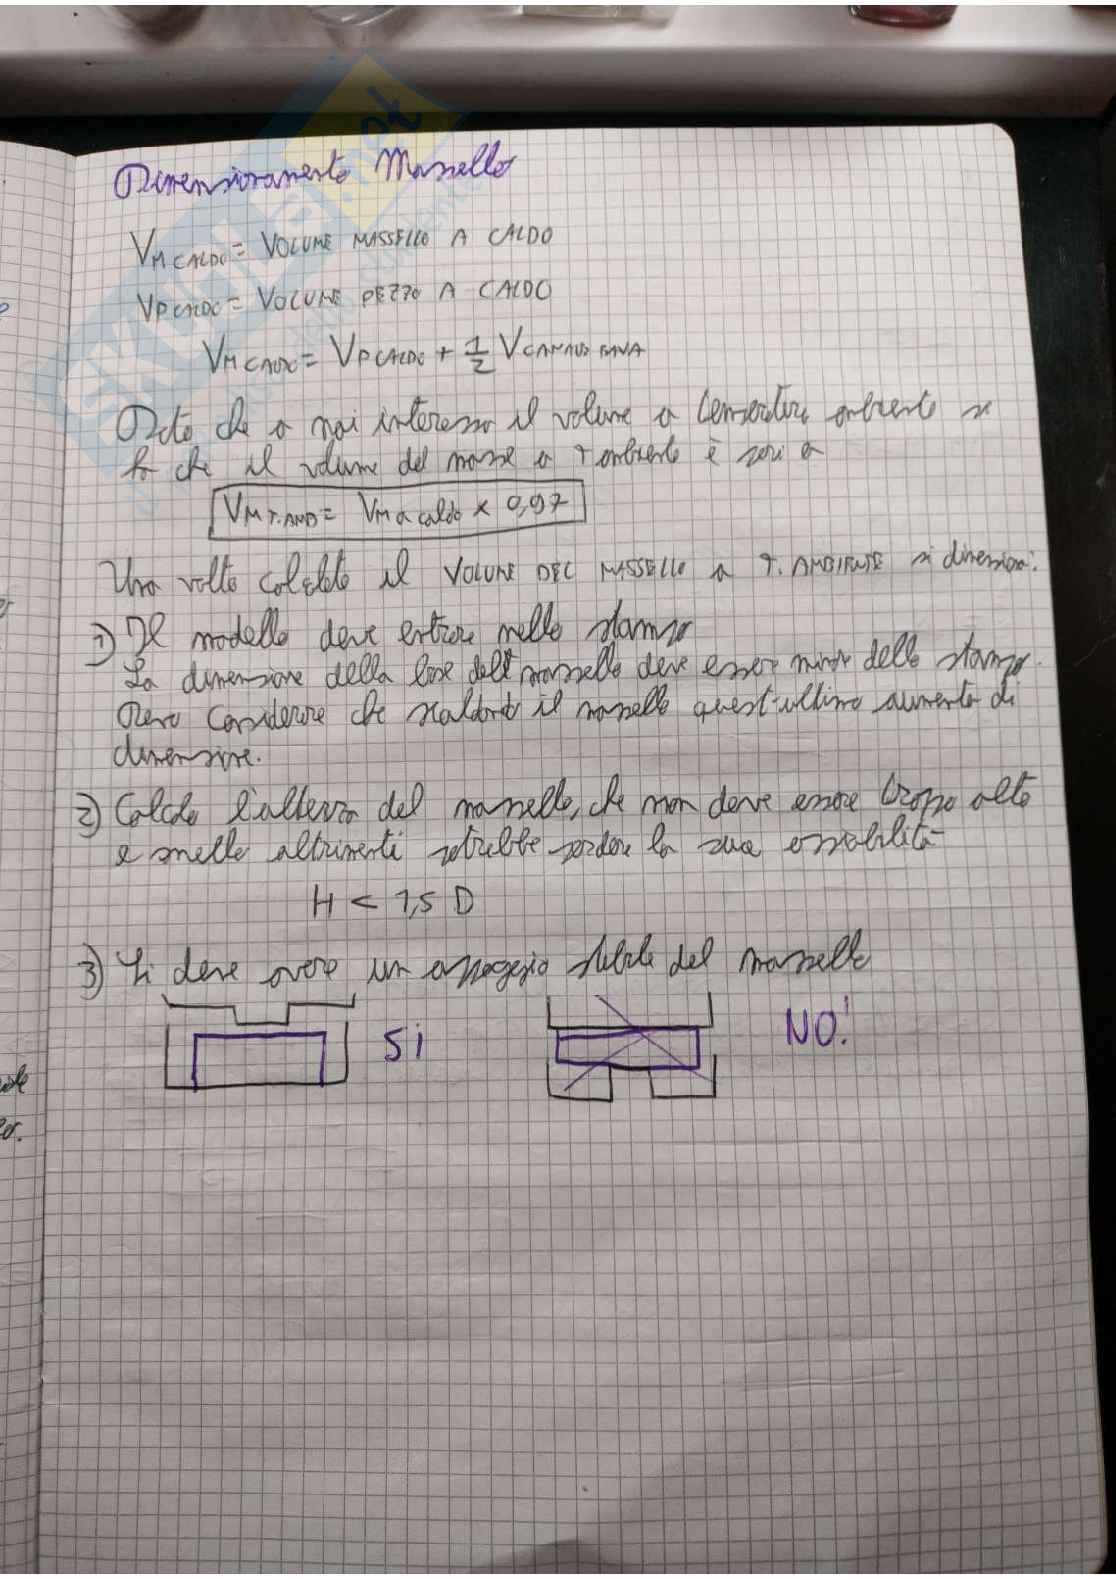 Dimensionamento Massello
V M CALDO = VOLUME MASSELLO A CALDO
V P CALDO = VOLUME PEZZO A CALDO
V M CALDO = V P CALDO + 1/2 V CANALE BAVA
Dato che a noi interessa il volume a temperatura ambiente si
fa che il volume del masse a T ambiente è pari a
V M T. AMB = V M a caldo × 0,97
Una volta calcolato il VOLUME DEL MASSELLO a T. AMBIENTE si dimensiona:
1) Il modello deve entrare nello stampo
La dimensione della base del massello deve essere minore dello stampo.
Devo considerare che scaldando il massello quest'ultimo aumenta di
dimensione.
2) Calcolo l'altezza del massello, che non deve essere troppo alto
e snello altrimenti potrebbe perdere la sua
H < 1,5 D
3) Si deve avere un appoggio stabile del massello
Si
NO!